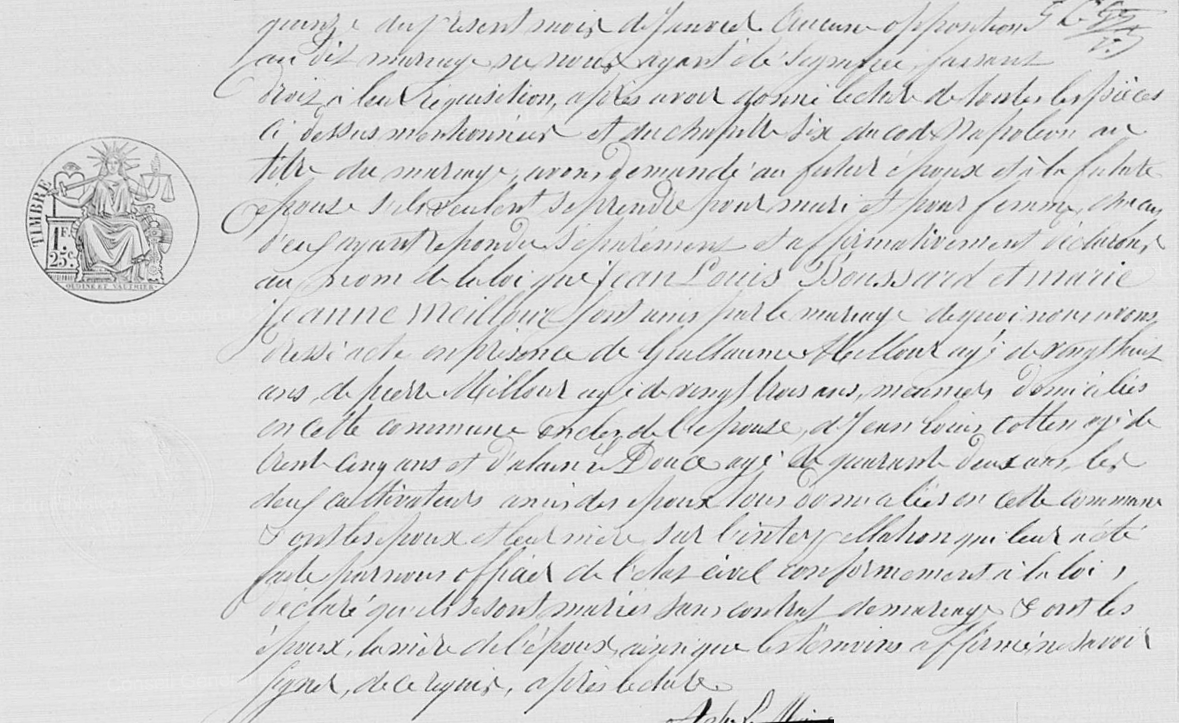 quinze du présent mois de janvier. Aucune opposition
au dit mariage ne nous ayant été signifiée, faisant
droit à leur réquisition, après avoir donné lecture de toutes les pièces
ci dessus mentionnées et du chapitre six du code Napoléon au
titre du mariage, avons demandé au futur époux et à la future
épouse s'ils veulent se prendre pour mari et pour femme, chacun
d'eux ayant repondu séparément et affirmativement déclarons
au nom de la loi que Jean Louis Boussard et marie
jeanne Meillour sont unis par le mariage de quoi nous avons
dressé acte en présence de Guillaume Meillour agé de vingt huit
ans, de pierre Meillour agé de vingt trois ans, meuniers domiciliés
en cette commune oncles de l'épouse, de Jean Louis Cotten agé de
trente cinq ans et d'alain Le Douce agé de quarante deux ans, les
deux cultivateurs amis des époux tous domiciliés en cette commune
& ont les époux et leur mère sur l'interpellation qui leur a été
faite par nous officier de l'état civil conformément à la loi,
déclaré qu'ils se sont mariés sans contrat de mariage & ont les
époux, la mère de l'époux, ainsi que les témoins affirmé ne savoir
signer, de ce requis, après lecture
TIMBRE
1 F.
25 C.